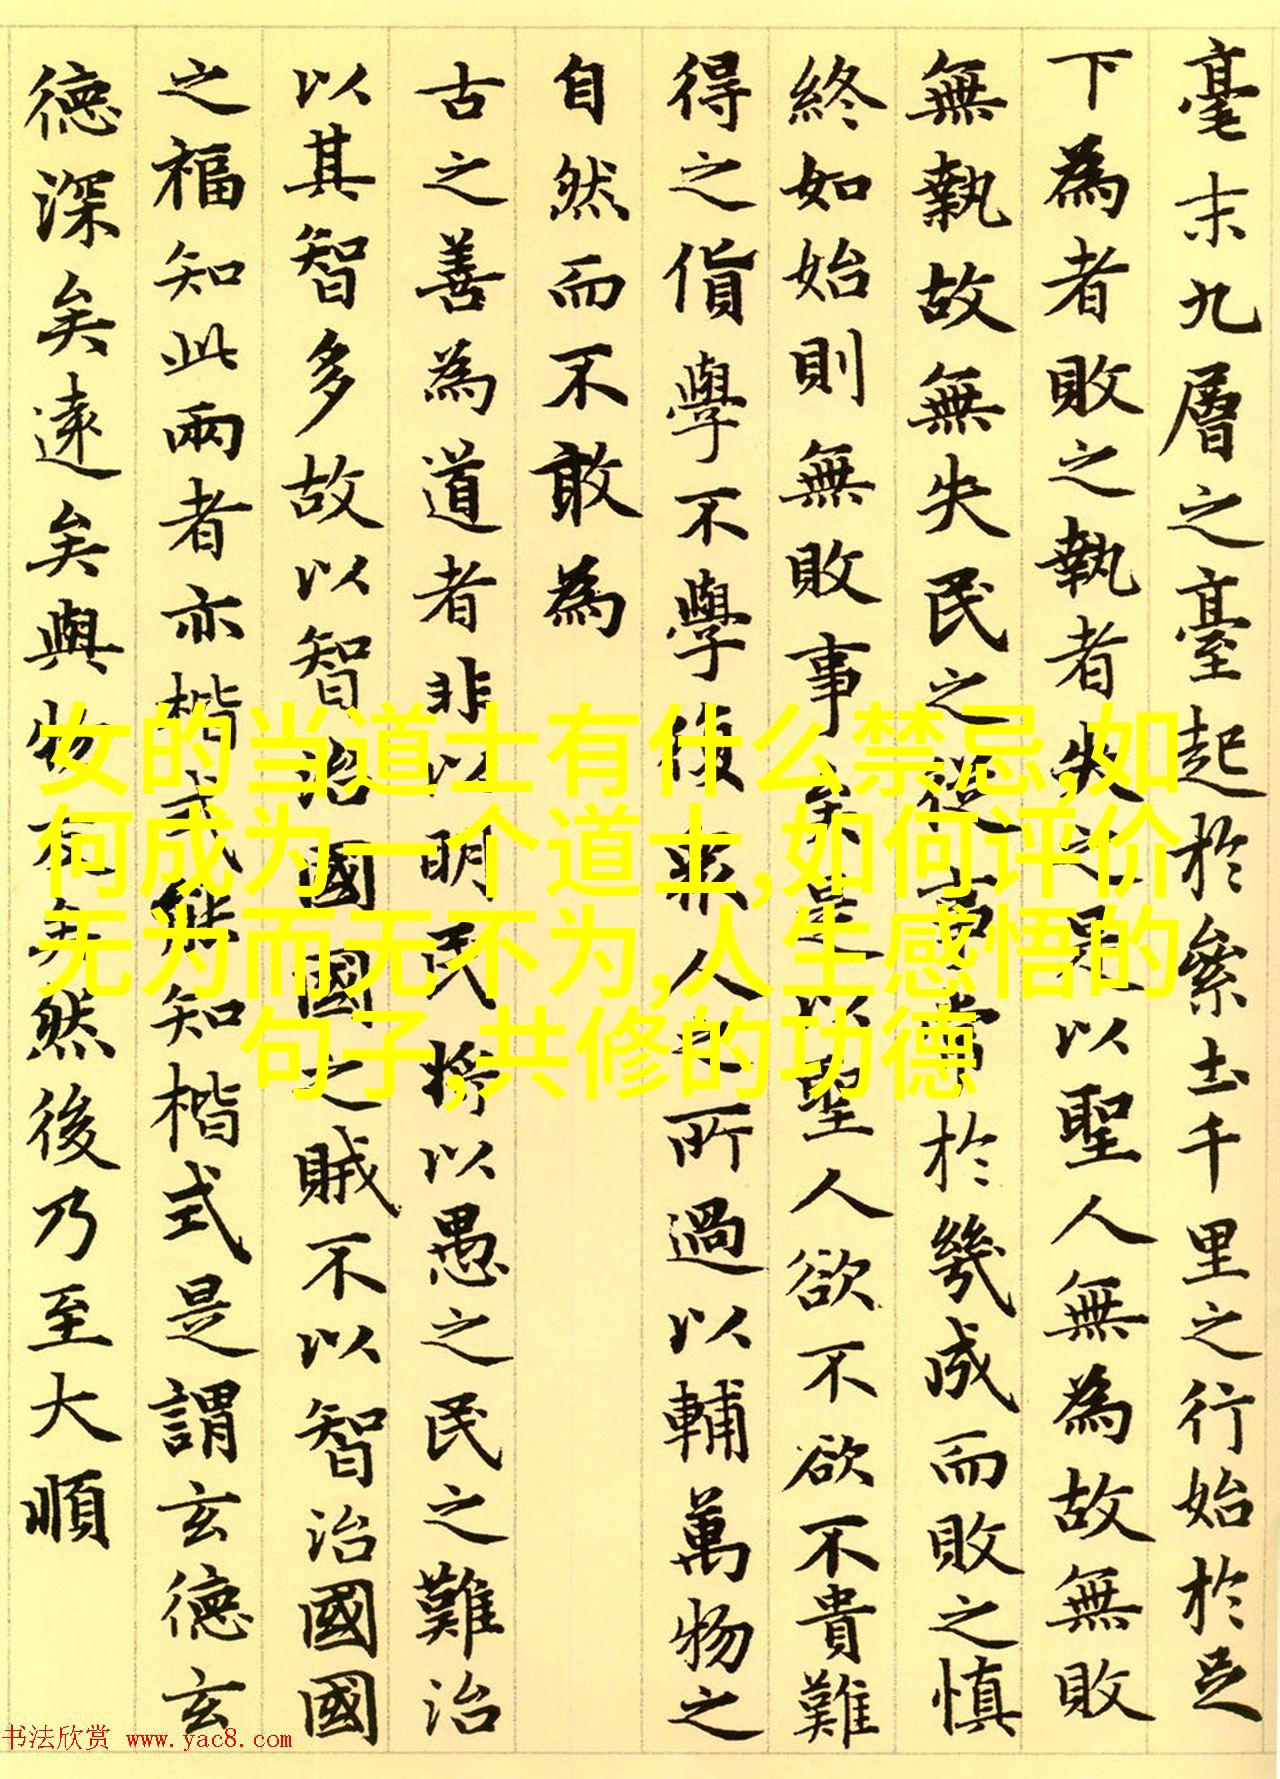 毫末九層之臺起於絫土千里之行始於足
下為者敗之執者失之是以聖人無為故無敗
無執故無失民之從事常於幾成而敗之慎
終如始則無敗事矣是以聖人欲不欲不貴難
得之貨學不學復眾人之所過以輔萬物之
自然而不敢為
古之善為道者非以明民將以愚之民之難治
以其智多故以智治國國之賊不以智治國國
之福知此兩者亦楷式能知楷式是謂玄德玄
德深矣遠矣與物反矣然後乃至大順
女的当道士有什么禁忌,如
何成为一个道士,如何评价
无为而无不为,人生感悟的
句子,共修的功德
书法欣赏 www.yac8.com